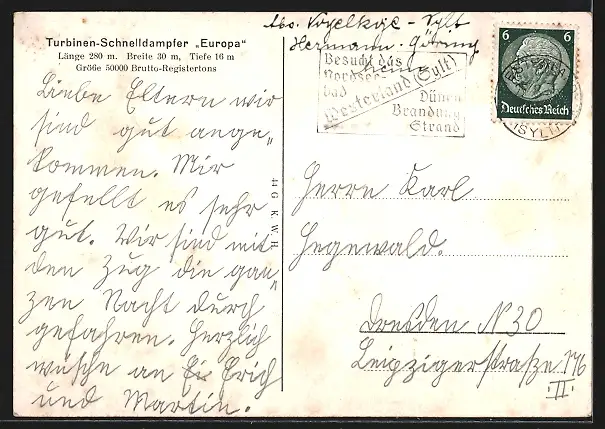 Turbinen-Schnelldampfer „Europa"
Länge 280 m. Breite 30 m, Tiefe 16 m
Größe 50000 Brutto-Registertons
Liebe Eltern wir
sind gut ange„
kommen. Mir
gefellt es sehr
gut. Wir sind mit
den Zug die gan„
zen Nacht durch
gefahren. Herzlich
an Erich
und Martin.
44 G. K. W. H.
Abs. Vogelkoje - Sylt
Hermann - Göring
Besucht das
Nordsee-
bad
Westerland (Sylt)
Dünen
Brandung
Strand
6 6
Deutsches Reich
(SYLT)
Herrn Karl
Hegewald.
Dresden N 30
Leipzigerstraße 176
II.